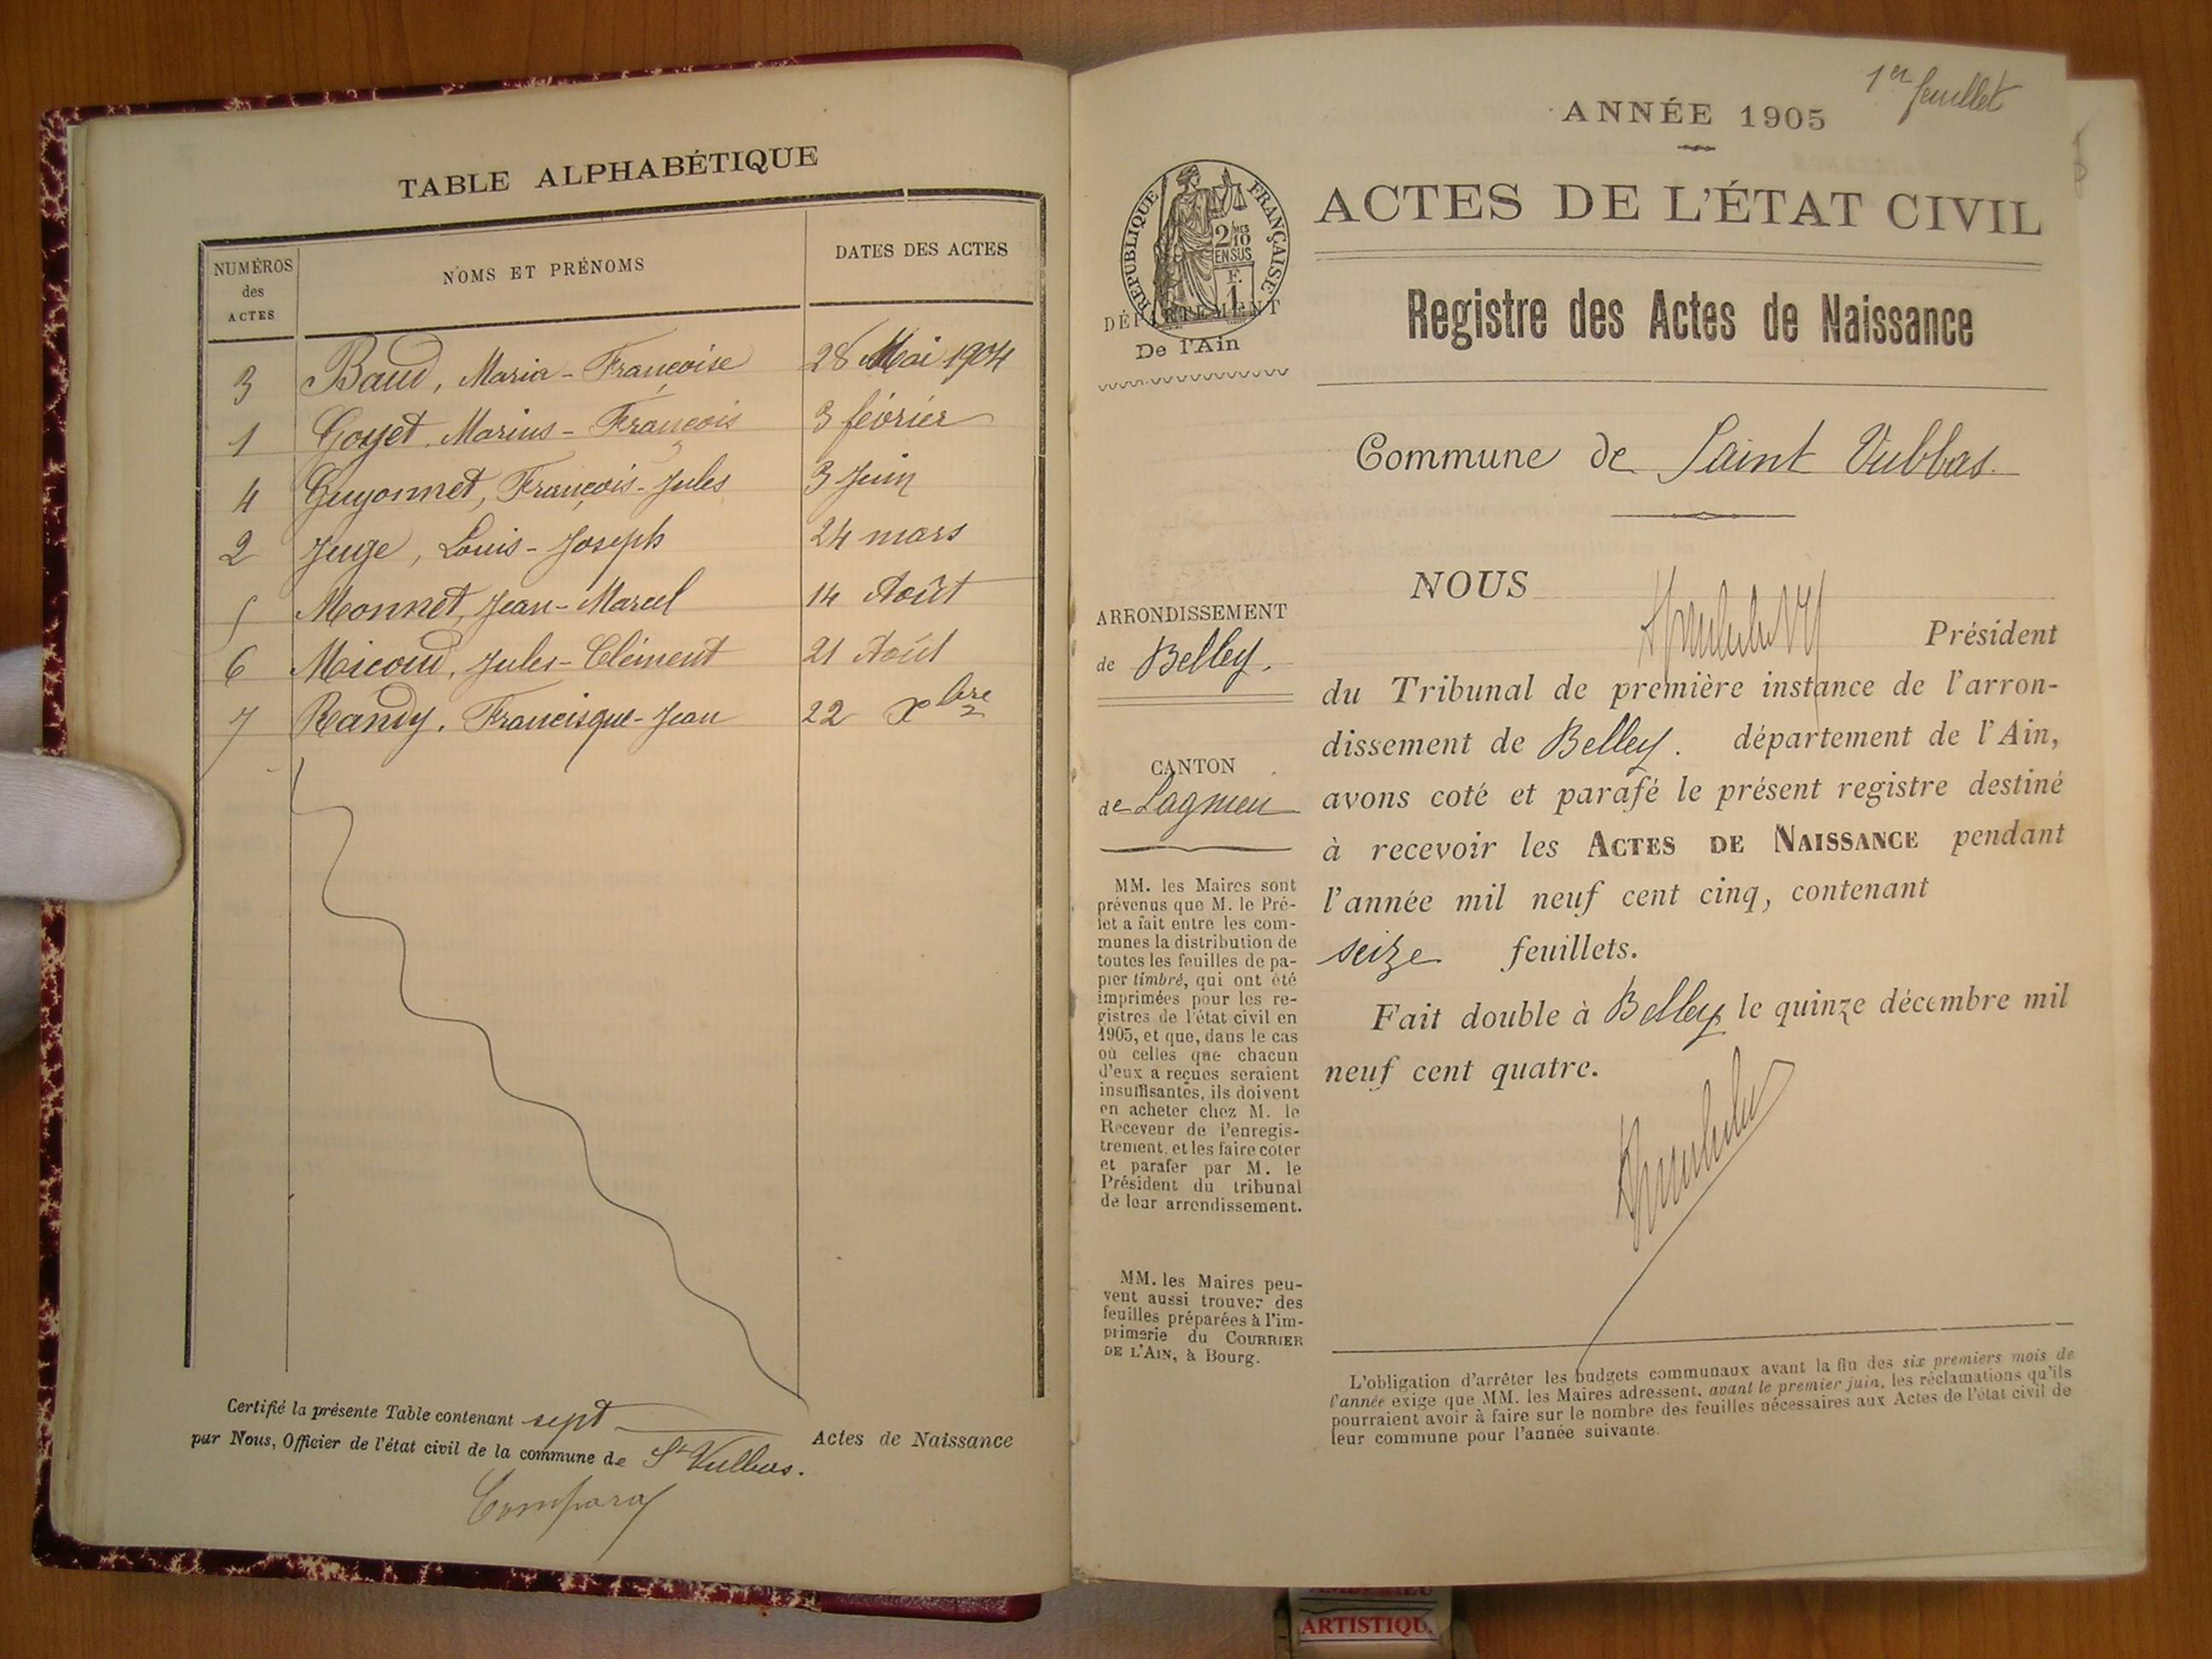 TABLE ALPHABÉTIQUE
NUMÉROS
des
ACTES
NOMS ET PRÉNOMS
DATES DES ACTES
3 Baud, Maria-Françoise 28 Mai 1904
1 Goyet, Marius-François 3 février
4 Guyonnet, François-Jules 3 Juin
2 Juge, Louis-Joseph 24 mars
5 Monnet, Jean-Marcel 14 Août
6 Micoud, Jules-Clément 21 Août
7 Randy, Francisque-Jean 22 Xbre
Certifié la présente Table contenant sept Actes de Naissance
par Nous, Officier de l'état civil de la commune de St Vulbas.
1er feuillet
ANNÉE 1905
ACTES DE L'ÉTAT CIVIL
RÉPUBLIQUE FRANÇAISE
2/10MES
EN SUS
F.
1
DÉPARTEMENT
De l'Ain
Registre des Actes de Naissance
Commune de Saint Vulbas
ARRONDISSEMENT
de Belley.
CANTON
de Lagnieu
MM. les Maires sont
prévenus que M. le Pré-
fet a fait entre les com-
munes la distribution de
toutes les feuilles de pa-
pier timbré, qui ont été
imprimées pour les re-
gistres de l'état civil en
1905, et que, dans le cas
où celles que chacun
d'eux a reçues seraient
insuffisantes, ils doivent
en acheter chez M. le
Receveur de l'enregis-
trement, et les faire coter
et parafer par M. le
Président du tribunal
de leur arrondissement.
MM. les Maires peu-
vent aussi trouver des
feuilles préparées à l'im-
primerie du COURRIER
DE L'AIN, à Bourg.
NOUS
Président
du Tribunal de première instance de l'arron-
dissement de Belley. département de l'Ain,
avons coté et parafé le présent registre destiné
à recevoir les ACTES DE NAISSANCE pendant
l'année mil neuf cent cinq, contenant
seize feuillets.
Fait double à Belley le quinze décembre mil
neuf cent quatre.
L'obligation d'arrêter les budgets communaux avant la fin des six premiers mois de
l'année exige que MM. les Maires adressent, avant le premier juin, les réclamations qu'ils
pourraient avoir à faire sur le nombre des feuilles nécessaires aux Actes de l'état civil de
leur commune pour l'année suivante.
ARTISTIQU